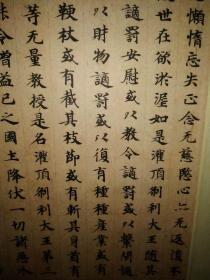 懶惰忘失正念无慈愍心亦无返復
世在欲淤泥如是灌頂刹利大王隨其
讁罰安慰或以教令讁罰或以繫閉讁
以財物讁罰或以復有種種產業或有
鞭杖或有截其枝節或有斬其身首有
等无量教授是名灌頂刹利大王第三
令增益已之國土降伏一切諸惡